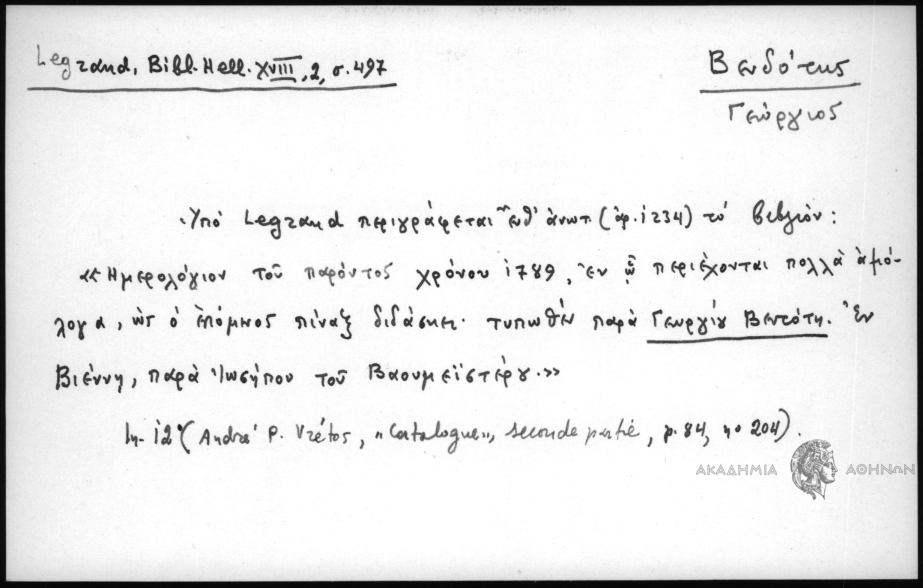 Legrand, Bibl. Hell. XVIII, 2, σ. 497
Βενδότης
Γεώργιος
Ὑπό Legrand περιγράφεται ἔνθ' ἀνωτ. (ἀρ. 1234) τό βιβλίον:
«Ἡμερολόγιον τοῦ παρόντος χρόνου 1789, ἐν ᾧ περιέχονται πολλὰ ἀξιό-
λογα, ὡς ὁ ἑπόμενος πίναξ διδάσκει· τυπωθέν παρὰ Γεωργίῳ Βεντότη. Ἐν
Βιέννῃ, παρὰ Ἰωσήπου τοῦ Βαουμεϊστέρου.»
In-12º (André P. Vrétos, «Catalogue», seconde partie, p. 84, nº 204).
ΑΚΑΔΗΜΙΑ ΑΘΗΝΩΝ